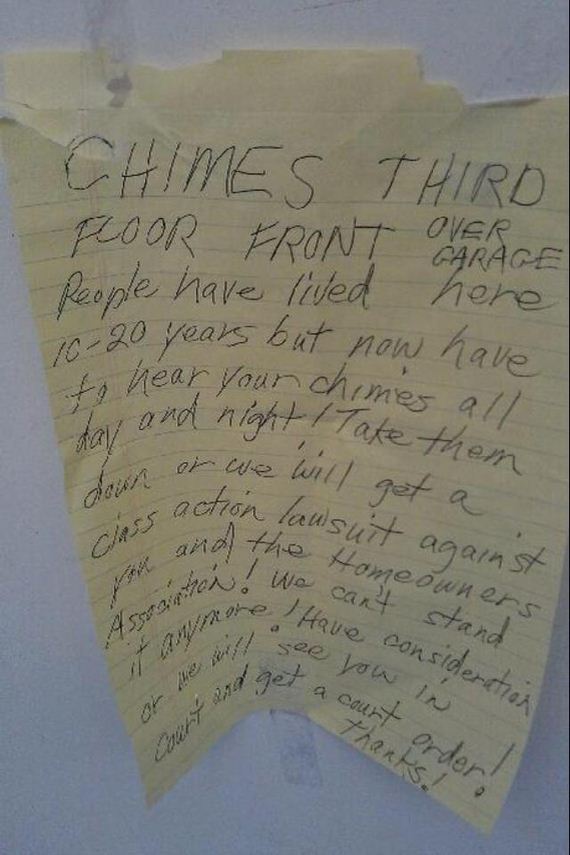 CHIMES THIRD
FLOOR FRONT OVER GARAGE
People have lived here
10-20 years but now have
to hear your chimes all
day and night! Take them
down or we will get a
class action lawsuit against
you and the Homeowners
Association! We can't stand
it anymore! Have consideration
or we will see you in
court and get a court order!
Thanks!